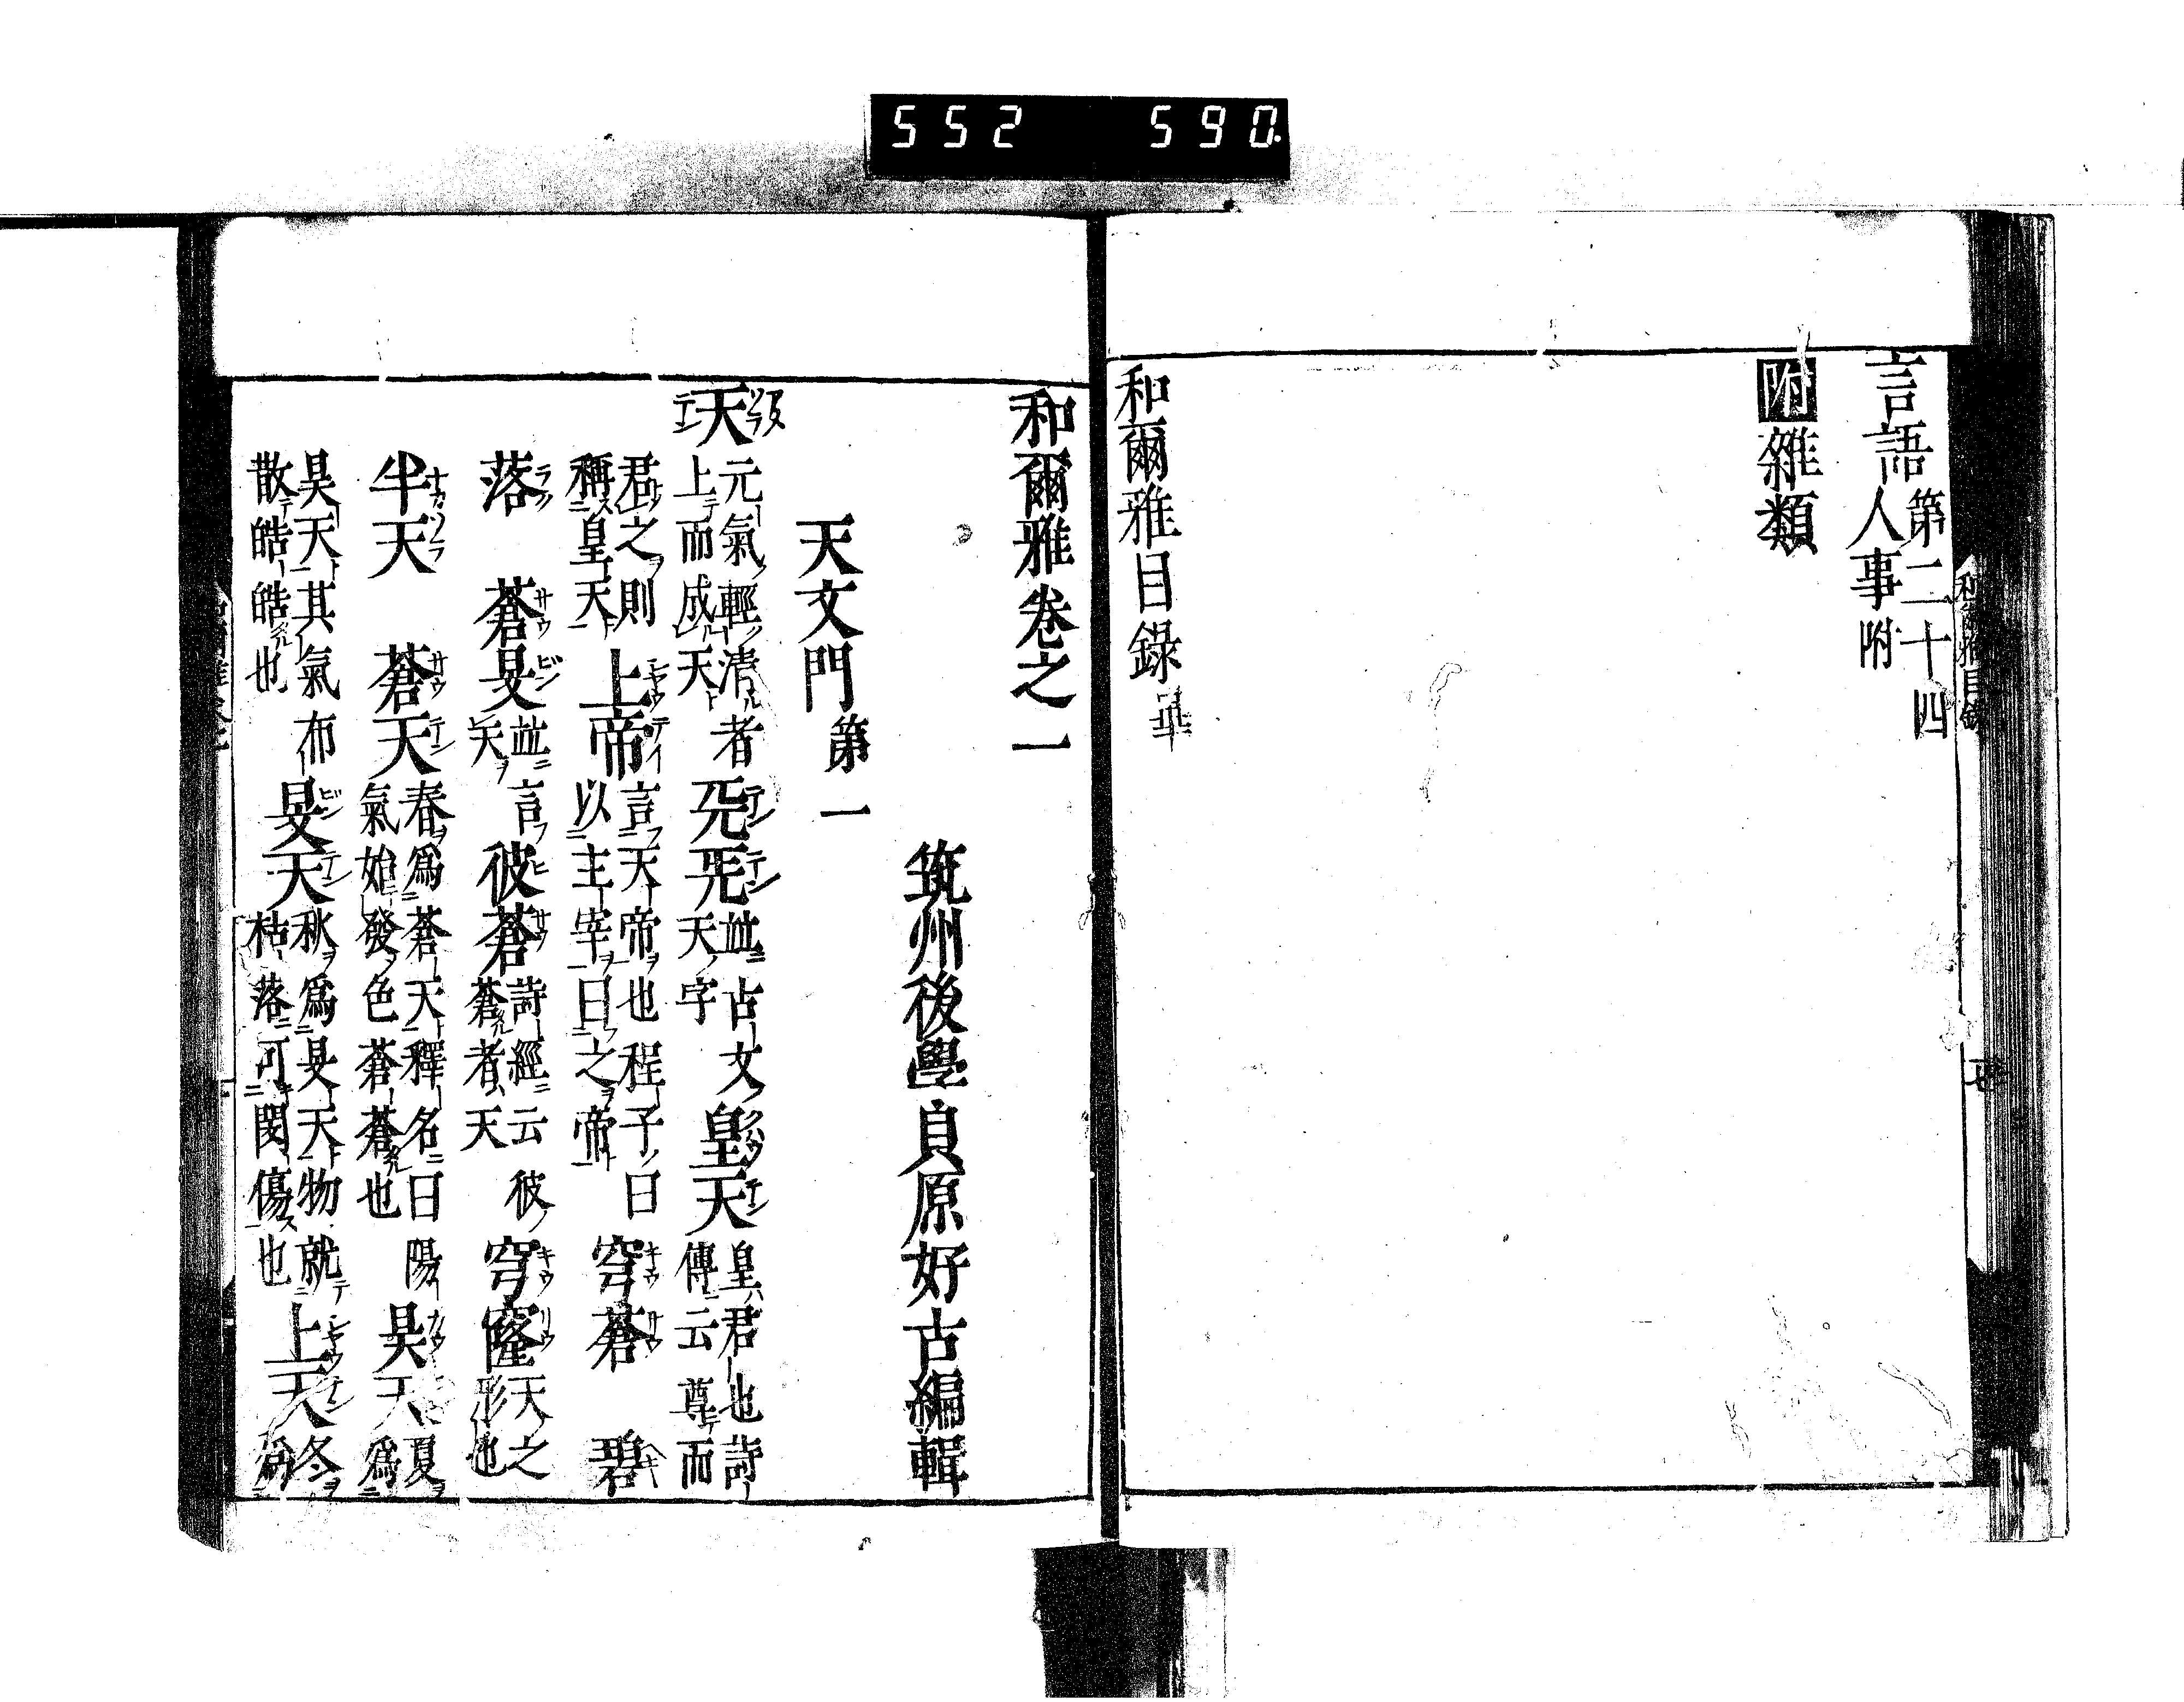 552 590.
言語 第二十四 人事附
附 雜類
和爾雅目錄畢
和爾雅卷之一
筑州後學貝原好古編輯
天文門 第一
天 元氣輕清者上而成天 兂 兂 並古文天字 皇天 皇君也詩傳云尊而
君之則稱皇天 上帝 言天帝也程子曰以主宰曰之帝 穹蒼 碧
落 蒼旻 並言天 彼蒼 詩經云彼蒼者天 穹窿 天之形也
半天 蒼天 春爲蒼天釋名曰陽氣始發色蒼蒼也 昊天 夏爲
昊天其氣布散皓皓也 旻天 秋爲旻天物就枯落可閔傷也 上天 冬爲